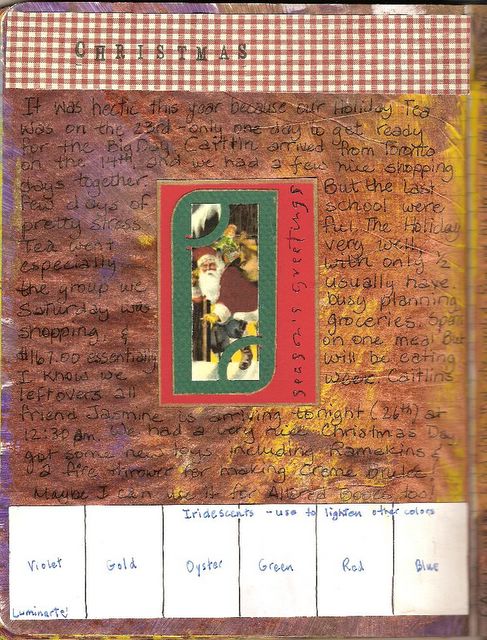 CHRISTMAS
It was hectic this year because our Holiday Tea
was on the 23rd - only one day to get ready
for the Big Day. Caitlin arrived from Toronto
on the 14th and we had a few nice shopping
days together. But the last
few days of school were
pretty stress ful. The Holiday
Tea went very well,
especially with only ½
the group we usually have.
Saturday was busy planning
shopping & groceries.
$167.00 essentially on one meal But
I know we will be eating
leftovers all week. Caitlins
friend Jasmine is arriving tonight (26th) at
12:30 am. We had a very nice Christmas Day
got some new toys including Ramekins &
a fire thrower for making Creme Brulee!
Maybe I can use it for Altered Books, too!
Season's Greetings
Iridescents - use to lighten other colors
Violet Gold Oyster Green Red Blue
Luminarte